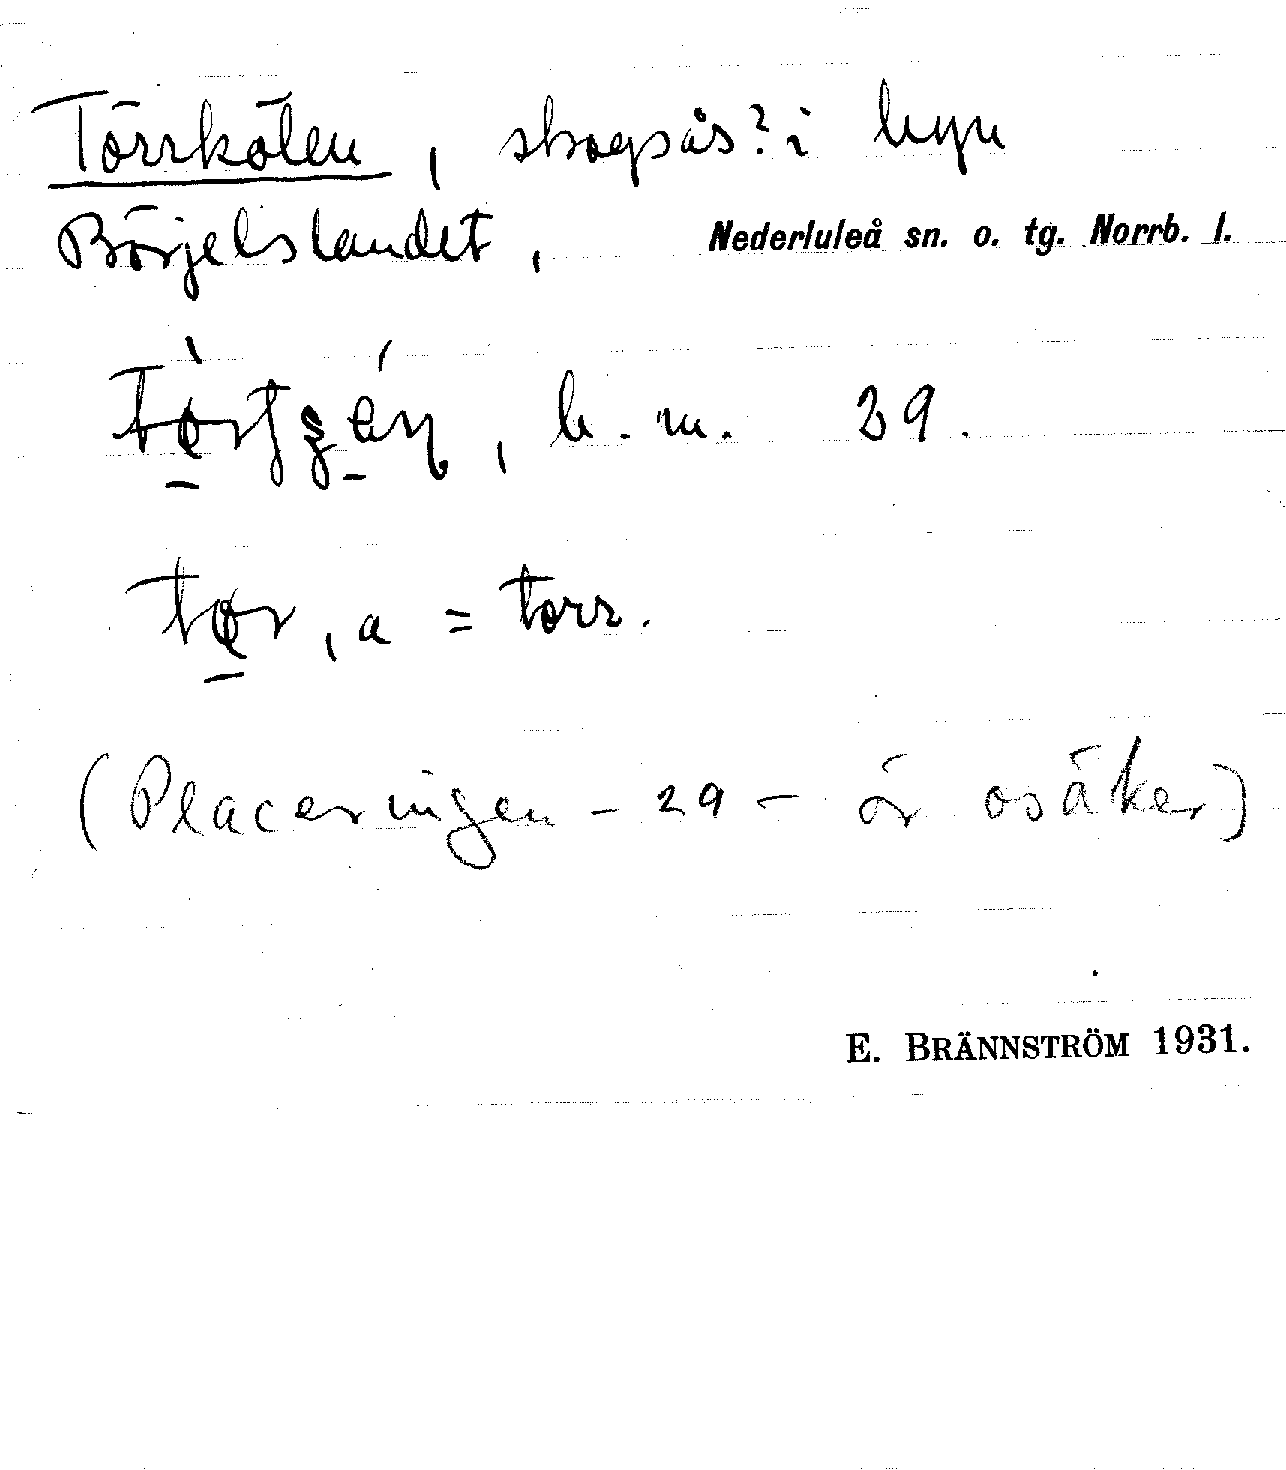 Törrkölen, skogsås? i byn
Börjelslandet, Nederluleå sn. o. tg. Norrb. l.
b. m. 29.
tør, a = torr.
(Placeringen - 29 - är osäker)
E. BRÄNNSTRÖM 1931.